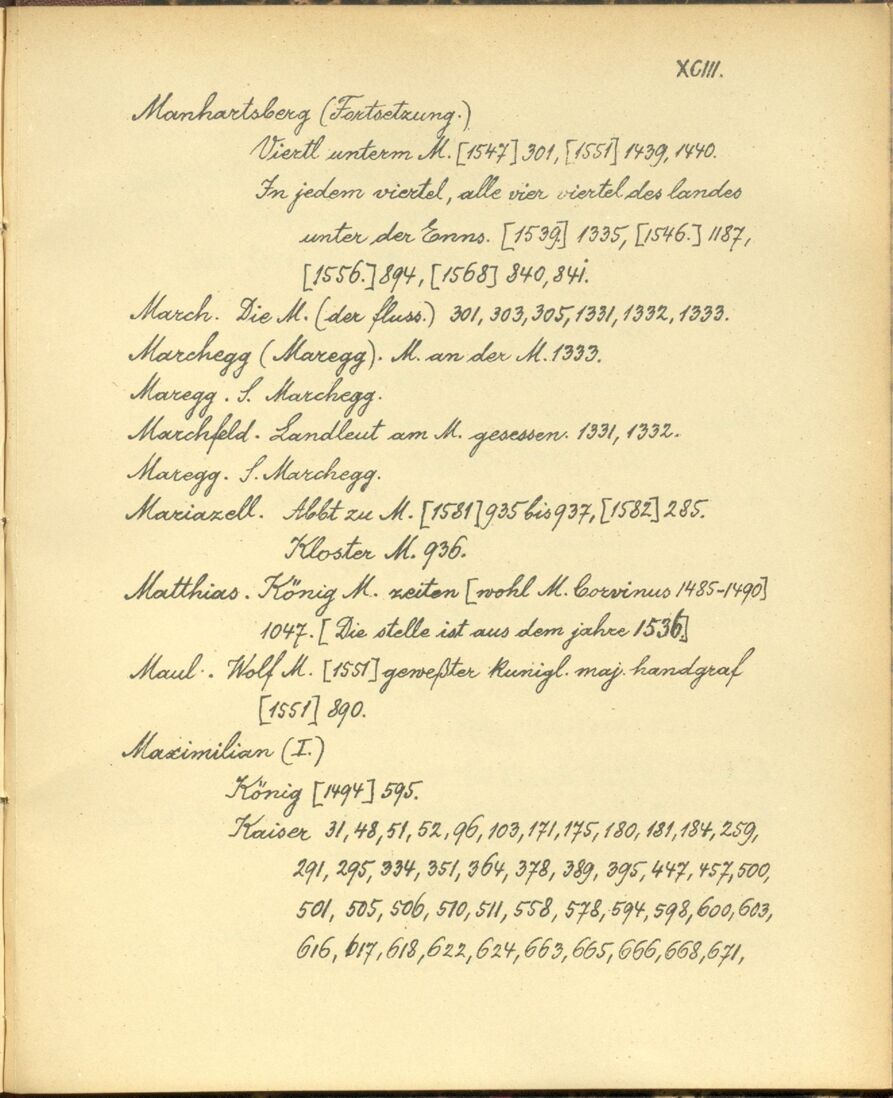 XCIII.
Manhartsberg (Fortsetzung.)
Viertl unterm M. [1547] 301, [1551] 1439, 1440.
In jedem viertel, alle vier viertel des landes
unter der Enns. [1539.] 1335, [1546.] 1187,
[1556.] 894, [1568] 840, 841.
March. Die M. (der fluss.) 301, 303, 305, 1331, 1332, 1333.
Marchegg (Maregg). M. an der M. 1333.
Maregg. S. Marchegg.
Marchfeld. Landleut am M. gesessen. 1331, 1332.
Maregg. S. Marchegg.
Mariazell. Abbt zu M. [1581] 935 bis 937, [1582] 285.
Kloster M. 936.
Matthias. König M. zeiten [wohl M. Corvinus 1485-1490]
1047. [Die stelle ist aus dem jahre 1536]
Maul. Wolf M. [1551] geweßter kunigl. maj. handgraf
[1551] 890.
Maximilian (I.)
König [1494] 595.
Kaiser 31, 48, 51, 52, 96, 103, 171, 175, 180, 181, 184, 259,
291, 295, 334, 351, 364, 378, 389, 395, 447, 457, 500,
501, 505, 506, 510, 511, 558, 578, 594, 598, 600, 603,
616, 617, 618, 622, 624, 663, 665, 666, 668, 671,